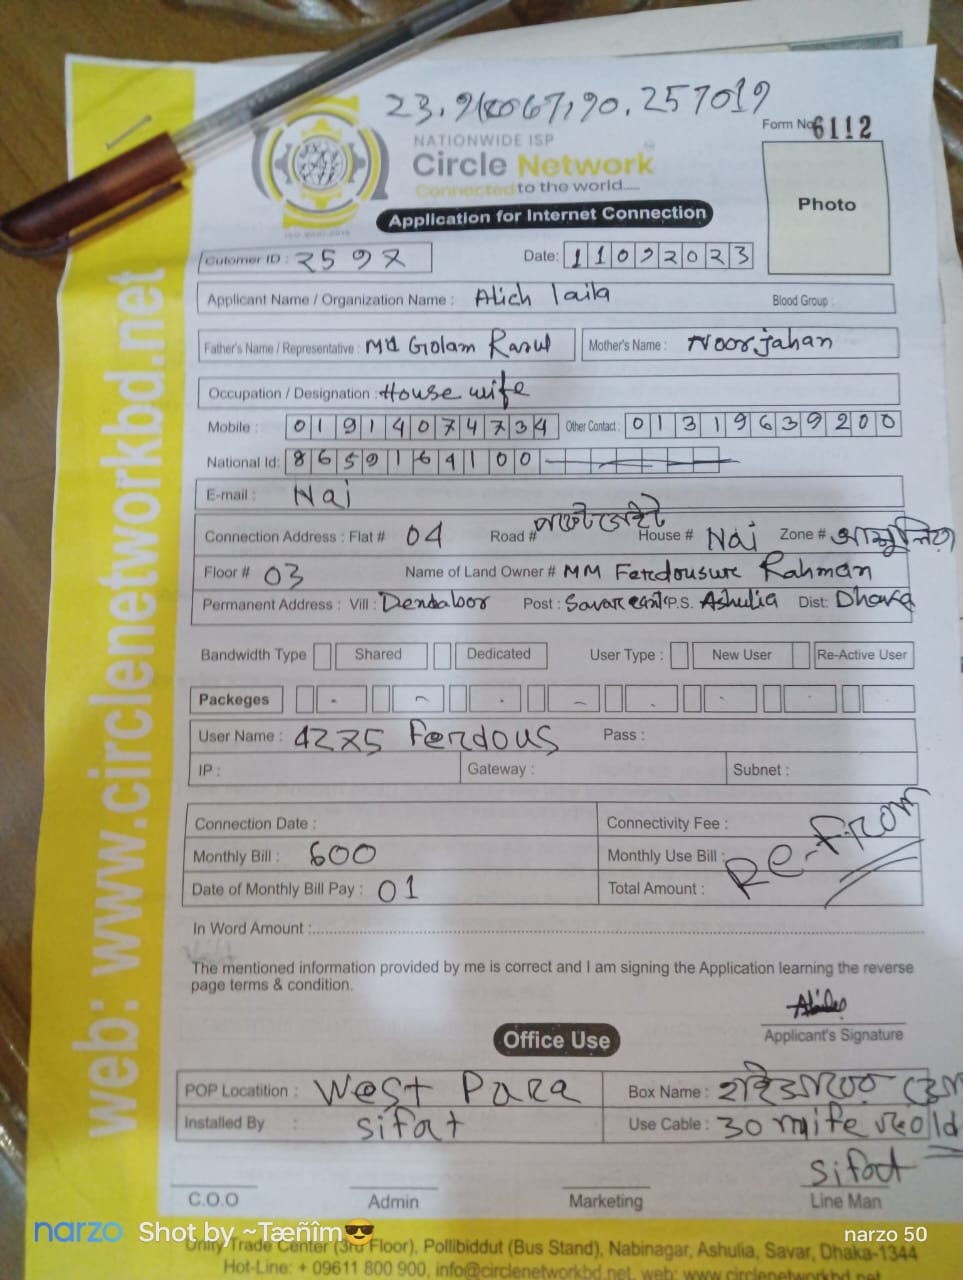 NATIONWIDE ISP
Form No 6112
Circle Network
Connected to the world....
Application for Internet Connection
Photo
ISO 9001:2015
Cutomer ID :
Date: 11092023
Applicant Name / Organization Name : Atich laila Blood Group :
Father's Name / Representative : Md Golam Rasul Mother's Name : Noorjahan
Occupation / Designation : House wife
Mobile : 01914074734 Other Contact : 01319639200
National Id: 8659164100
E-mail : Nai
Connection Address : Flat # 04 Road # House # Nai Zone # আশুলিয়া
Floor # 03 Name of Land Owner # MM Ferdousure Rahman
Permanent Address : Vill : Dendabor Post : Savar cant P.S. Ashulia Dist: Dhaka
Bandwidth Type Shared Dedicated User Type : New User Re-Active User
Packeges
User Name : 4275 Ferdous Pass :
IP : Gateway : Subnet :
Connection Date : Connectivity Fee :
Monthly Bill : 600 Monthly Use Bill :
Re-From
Date of Monthly Bill Pay : 01 Total Amount :
In Word Amount :
The mentioned information provided by me is correct and I am signing the Application learning the reverse
page terms & condition.
Applicant's Signature
Office Use
POP Locatition : West Para Box Name :
Installed By : Sifat Use Cable : 30 old
Sifat
C.O.O Admin Marketing Line Man
Unity Trade Center (3rd Floor), Pollibiddut (Bus Stand), Nabinagar, Ashulia, Savar, Dhaka-1344
Hot-Line: + 09611 800 900, info@circlenetworkbd.net, web: www.circlenetworkbd.net
web: www.circlenetworkbd.net
narzo Shot by ~Tæñîm😎 narzo 50